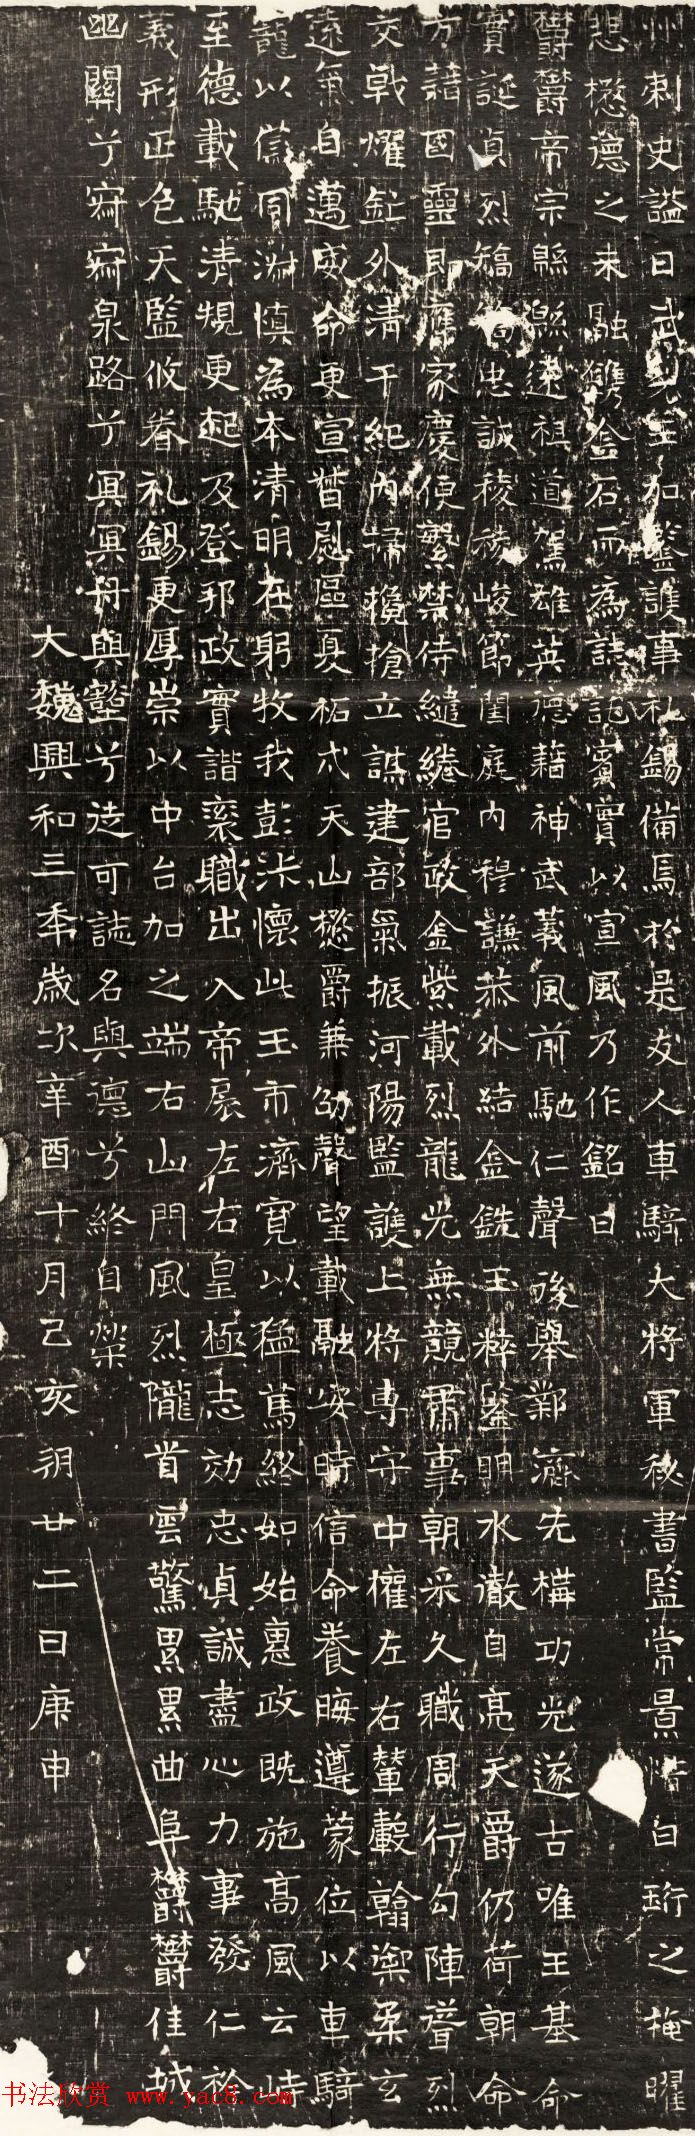 州刺史謚曰武宣王加鉴護事礼錫備焉於是友人車騎大将軍秘書監常景惜白珩之掩曜
悲懋德之未融鐫金石而為誌託賓實以宣風乃作銘曰
欝欝帝宗緜緜遠祖道駕雄英德藉神武義風前馳仁聲後舉鄴濟先構功光遂古唯王基命
實誕貞烈 忠誠稜稜峻節閨庭內穆謙恭外結金銑玉粹鉴明水澈自亮天爵仍荷朝命
方藉國靈即應家慶便繁禁侍繾綣官政金紫載烈龍光無競肅事朝采久職周行勾陳聳烈
交戟燿釭外清干紀內掃欃搶立謀建部氣振河陽監護上将專守中權左右輦轂翰禦柔玄
遠氣自邁威命更宣晉慰區夏柘弌天山懋爵兼劭聲望載融安時信命養晦遵蒙位以車騎
龍以儐同淵慎為本清明在躬牧我彭沛懷此王市濟寬以猛篤終如始惠政既施高風云恃
至德載馳清規更起及登邦政實諧衮職出入帝扆左右皇極志効忠貞誠盡心力事發仁於
義形正色天監攸眷礼錫更厚崇以中台加之端右山門風烈隴首雲驚累累曲阜欝欝佳城
幽關兮寂寂泉路兮冥冥舟與壑兮徒可誌名與德兮終自榮
大魏興和三年歲次辛酉十月己亥朔廿二日庚申
书法欣赏 www.yac8.com